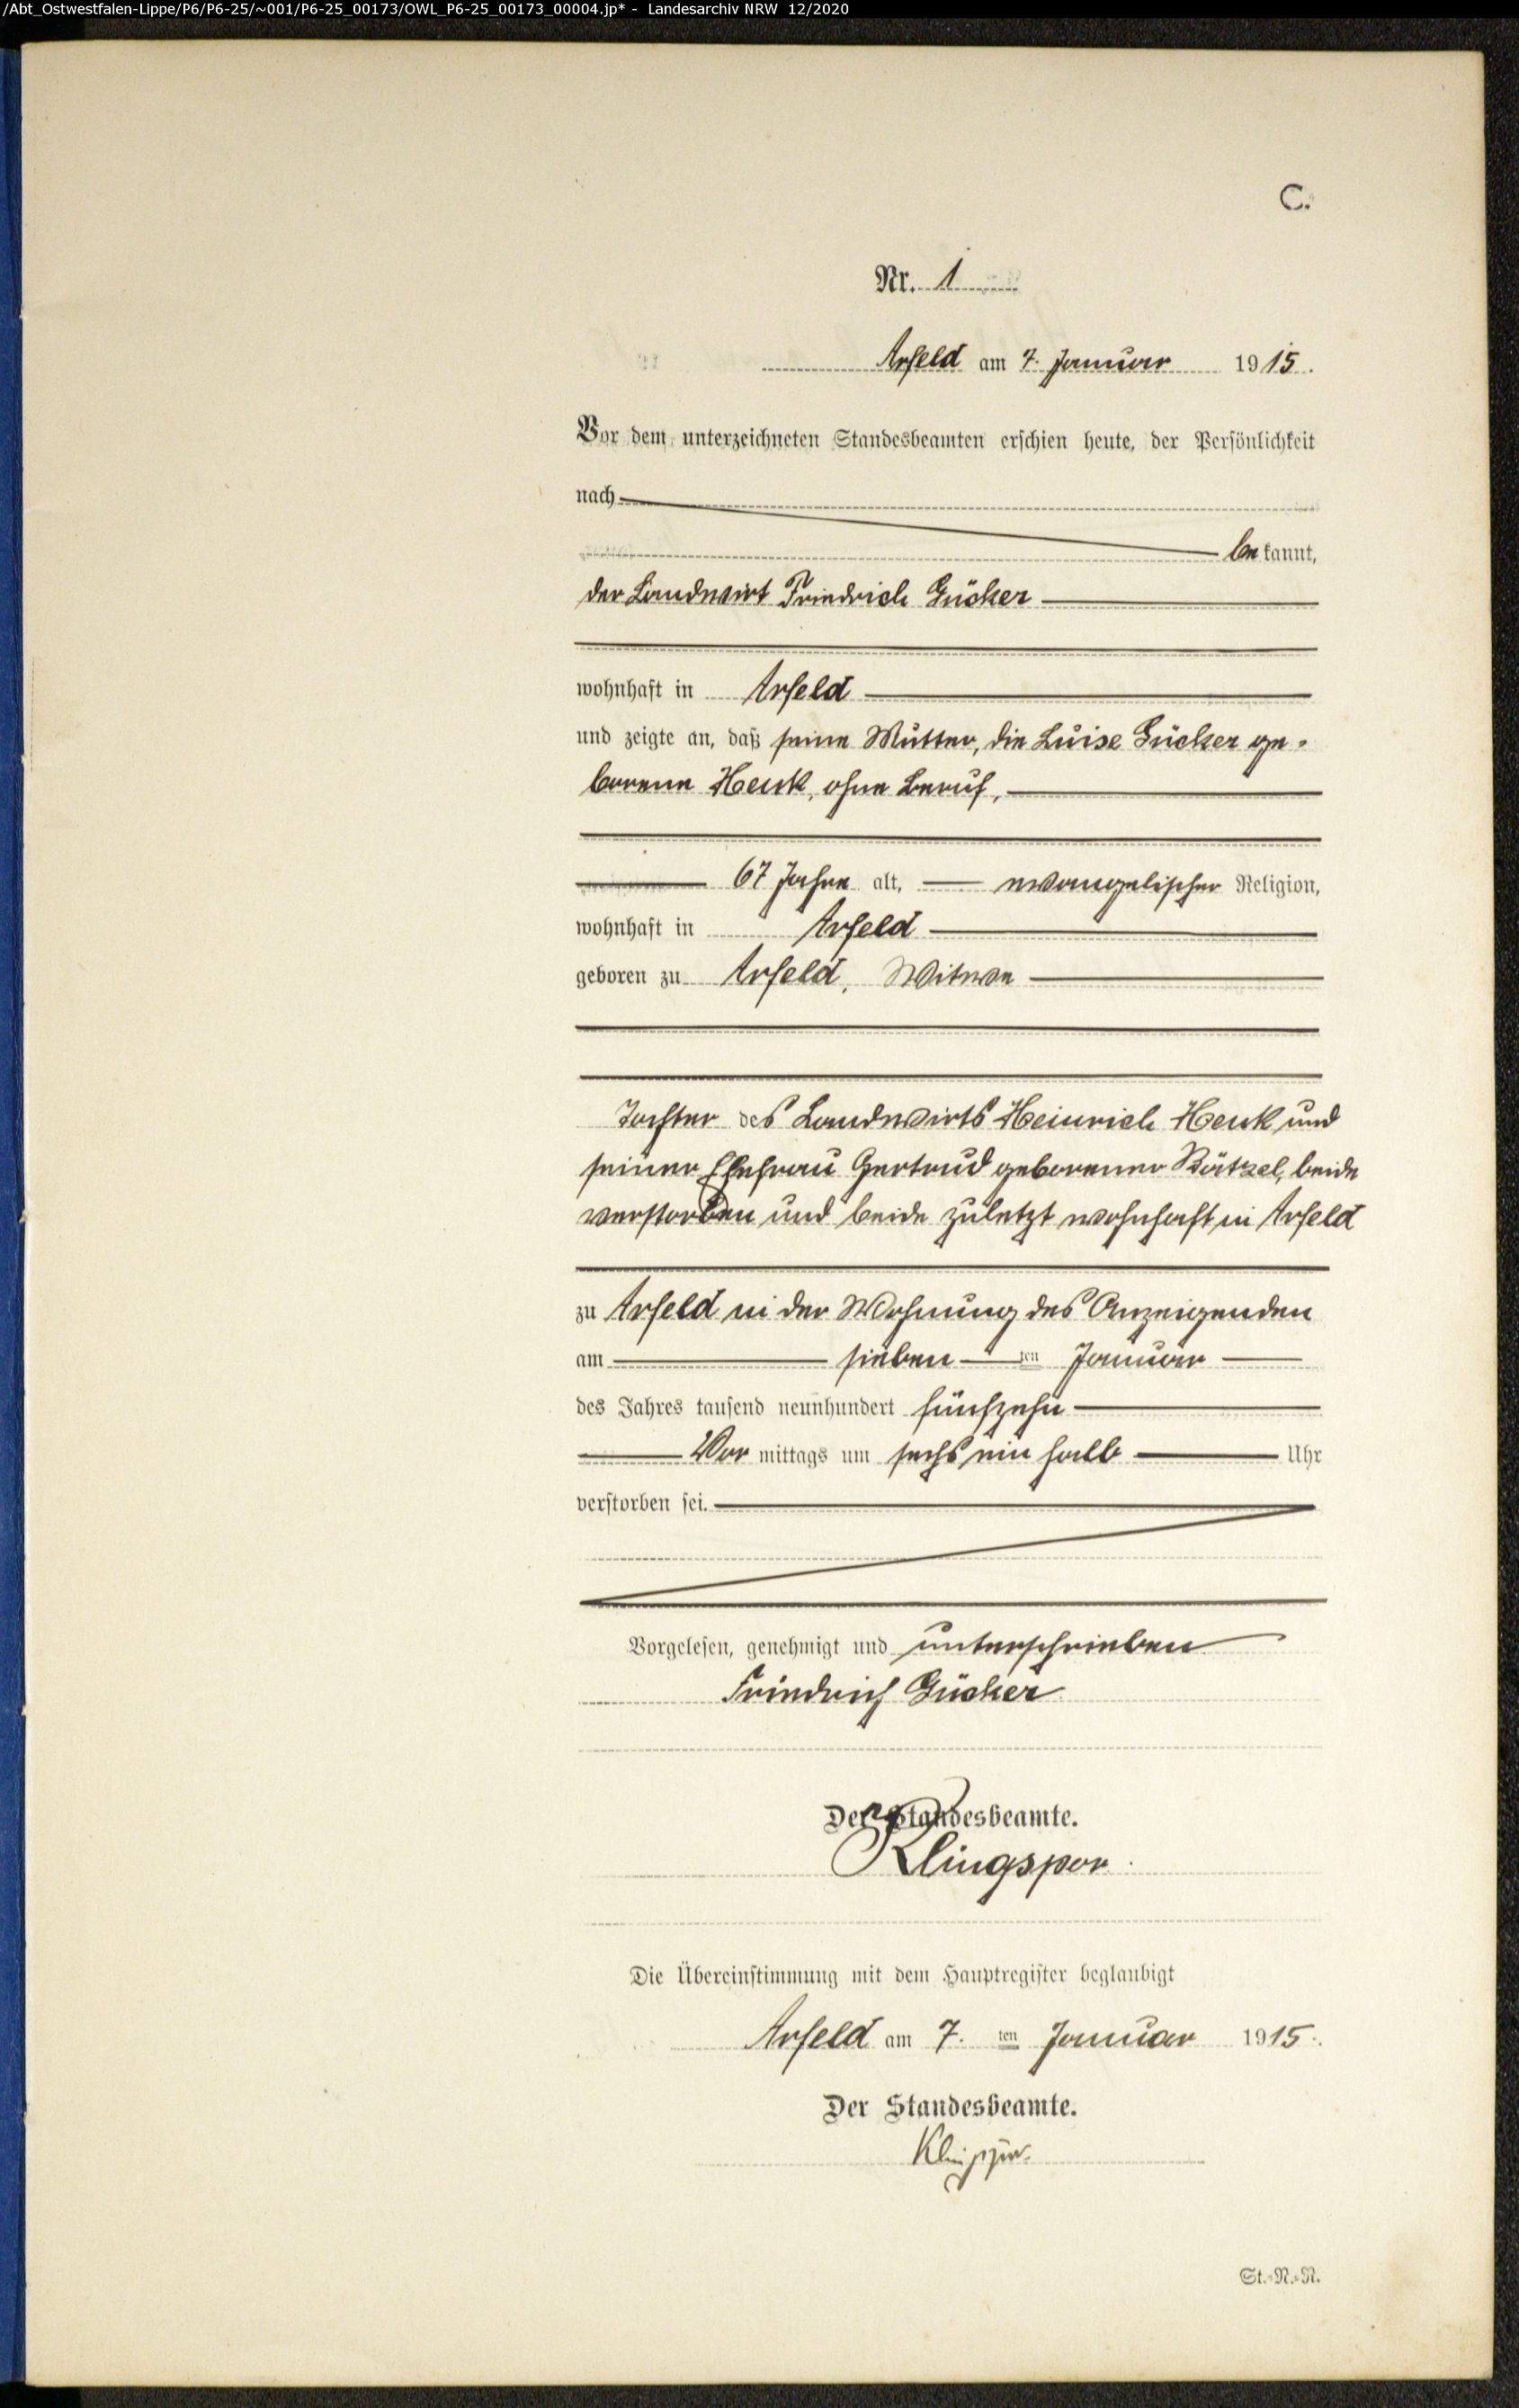 /Abt_Ostwestfalen-Lippe/P6/P6-25/~001/P6-25_00173/OWL_P6-25_00173_00004.jp* - Landesarchiv NRW 12/2020
C.
Nr. 1
Arfeld am 7. Januar 1915.
Vor dem unterzeichneten Standesbeamten erschien heute, der Persönlichkeit
nach
bekannt,
der Landwirt Friedrich Gücker
wohnhaft in Arfeld
und zeigte an, daß seine Mutter, die Luise Gücker ge-
borene Henk, ohne Beruf,
67 Jahre alt, evangelischer Religion,
wohnhaft in Arfeld
geboren zu Arfeld, Witwe
Tochter des Landwirts Heinrich Henk und
seiner Ehefrau Gertrud geborener Bätzel, beide
verstorben und beide zuletzt wohnhaft in Arfeld
zu Arfeld in der Wohnung des Anzeigenden
am sieben ten Januar
des Jahres tausend neunhundert fünfzehn
Vor mittags um sechs ein halb Uhr
verstorben sei.
Vorgelesen, genehmigt und unterschrieben
Friedrich Gücker
Der Standesbeamte.
Klingspor.
Die Übereinstimmung mit dem Hauptregister beglaubigt
Arfeld am 7. ten Januar 1915.
Der Standesbeamte.
Klingspor.
St.-N.-N.